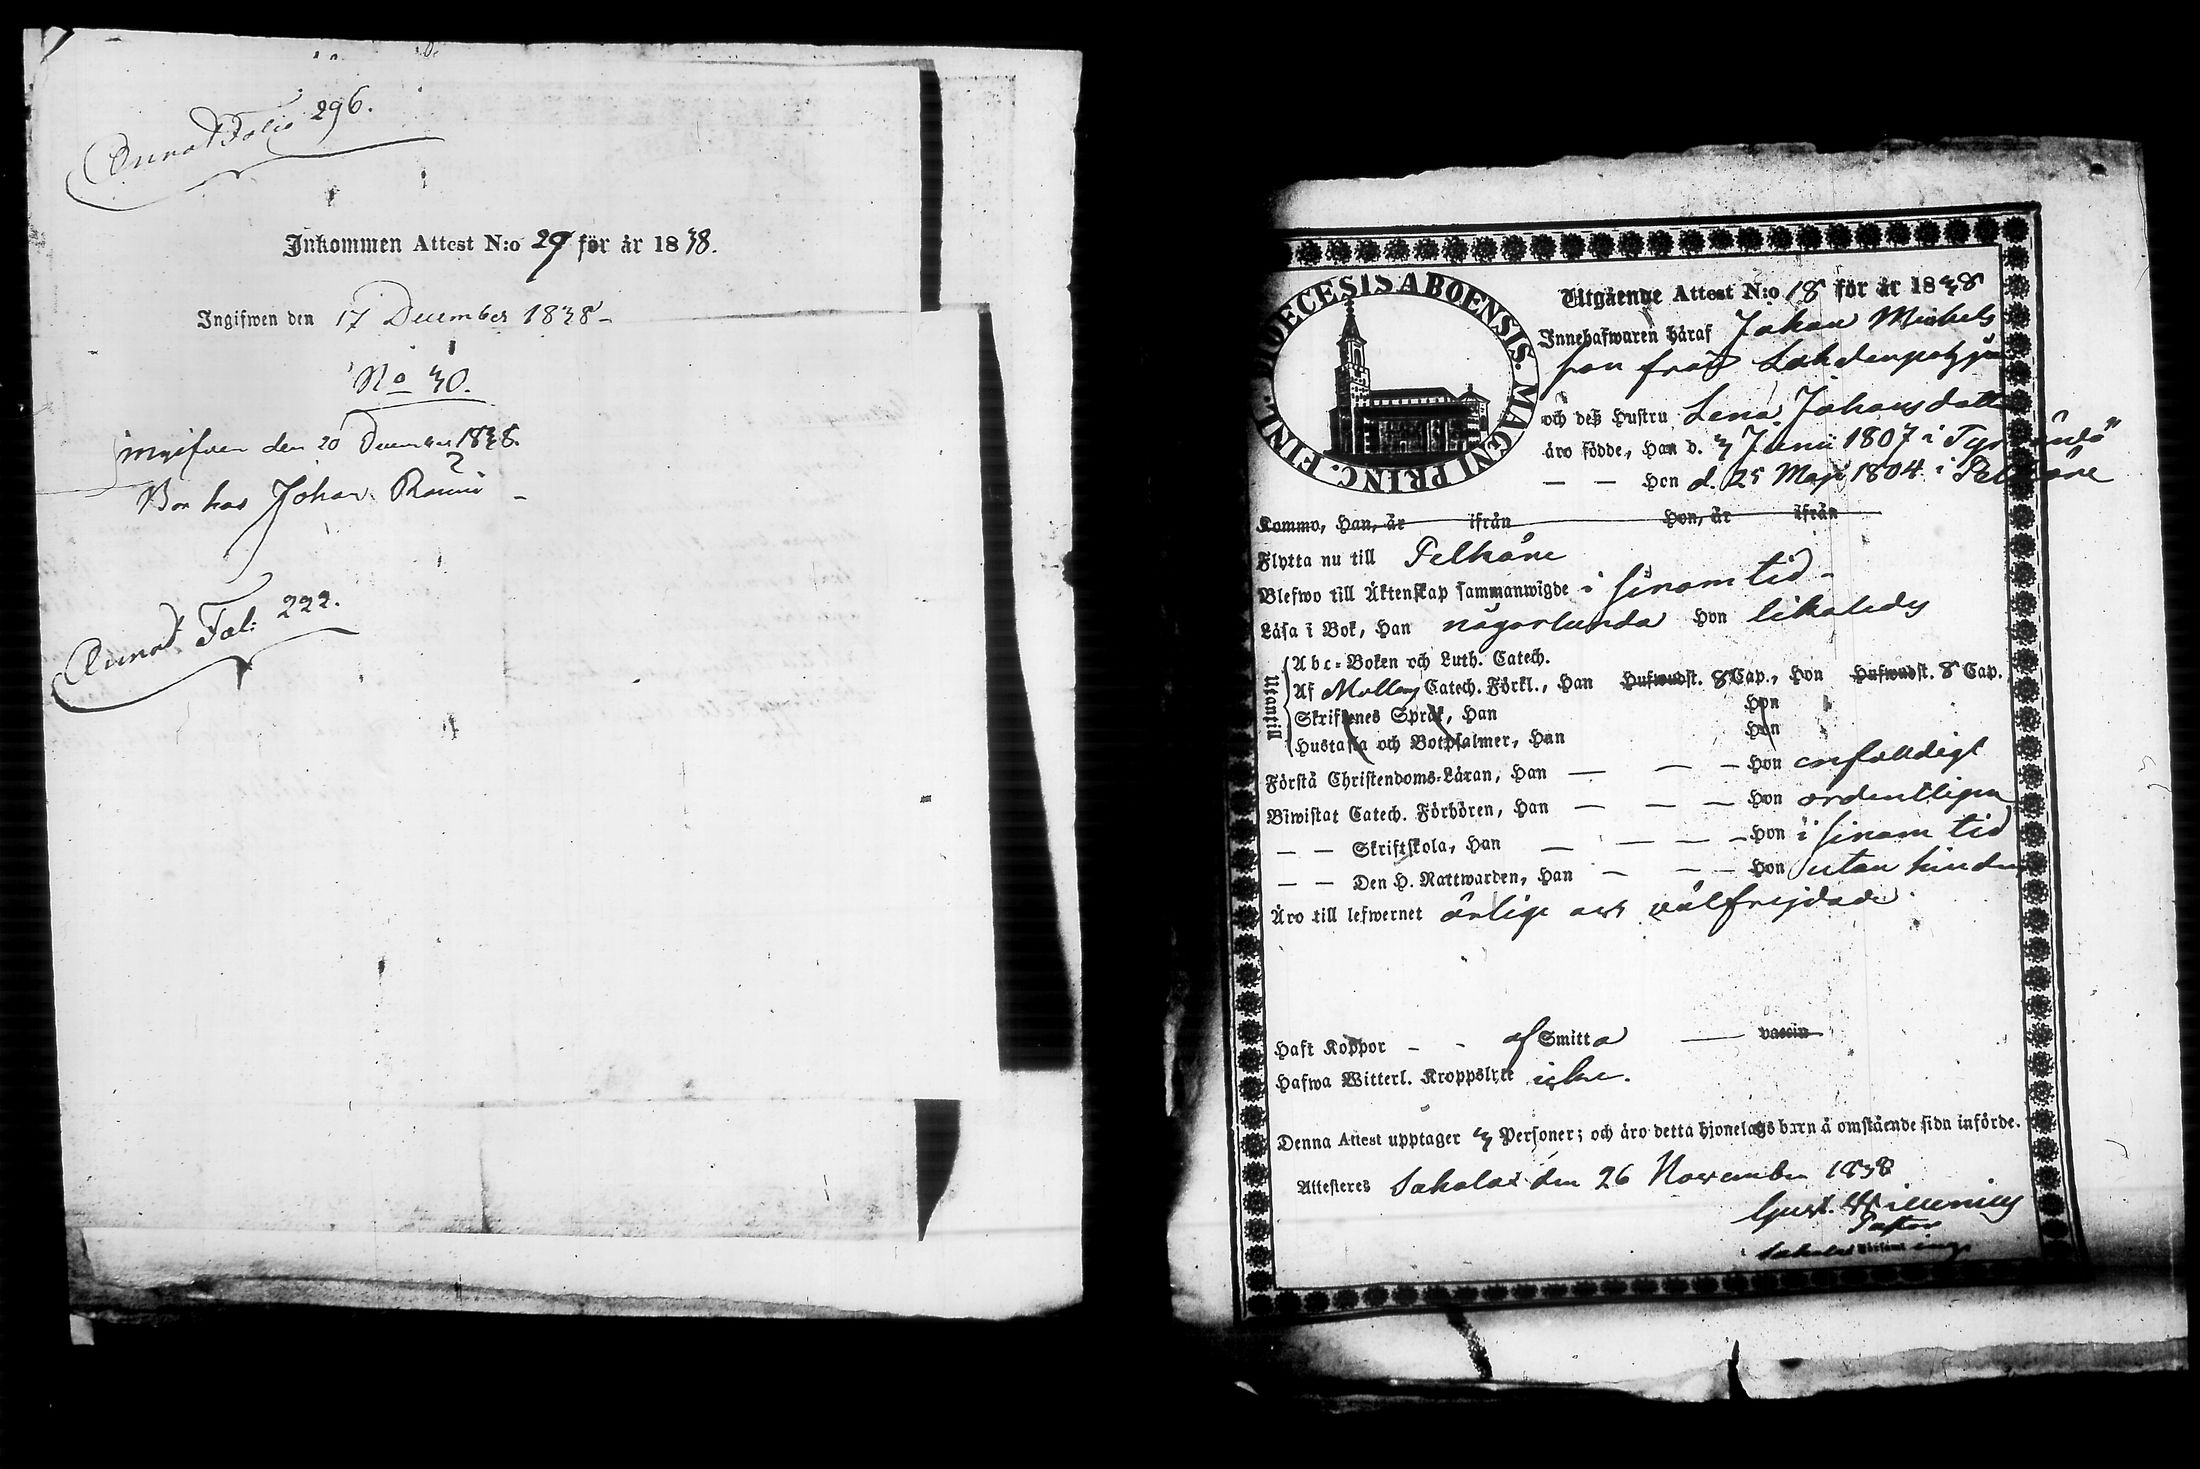 Annot Folio 296.
Inkommen Attest N:o 29 för år 1838.
Ingifwen den 17 December 1838
No 30.
ingifven den 20 December 1838.
Bor hos Johan
Annot Fol: 222.
DIOECESIS ABOENSIS. MAGNI PRINC. FINL.
Utgående Attest N:o 18 för år 1838
Innehafwaren häraf Johan Michels
son från Lahdenpohja
och deß Hustru Lena Johansdotter
äro födde, Han d. 3 Junii 1807 i
— — Hon d. 25 Maji 1804 i Pelkäne
Kommo, Han, är ifrån Hon, är ifrån
Flytta nu till Pelkäne
Blefwo till Äktenskap sammanwigde i sinom tid
Läsa i Bok, Han någorlunda Hon likaledes
Utantill
Abc-Boken och Luth. Catech.
Af Catech. Förkl., Han Hufwudst. 8 Cap., Hon Hufwudst. 8 Cap.
Skriftenes Språk, Han Hon
Hustafla och Botpsalmer, Han Hon
Förstå Christendoms-Läran, Han — — — Hon enfaldigt
Biwistat Catech. Förhören, Han — — — Hon ordentligen
— — Skriftskola, Han — — — Hon i sinom tid
— — Den H. Nattwarden, Han — — — Hon utan hinder
Äro till lefwernet ärlige och välfrejdade
Haft Koppor - - af Smitta — vaccin
Hafwa Witterl. Kroppslyte icke.
Denna Attest upptager 3 Personer; och äro detta hjonelags barn å omstående sida införde.
Attesteres den 26 November 1838
Gust.
Pastor
i Församling